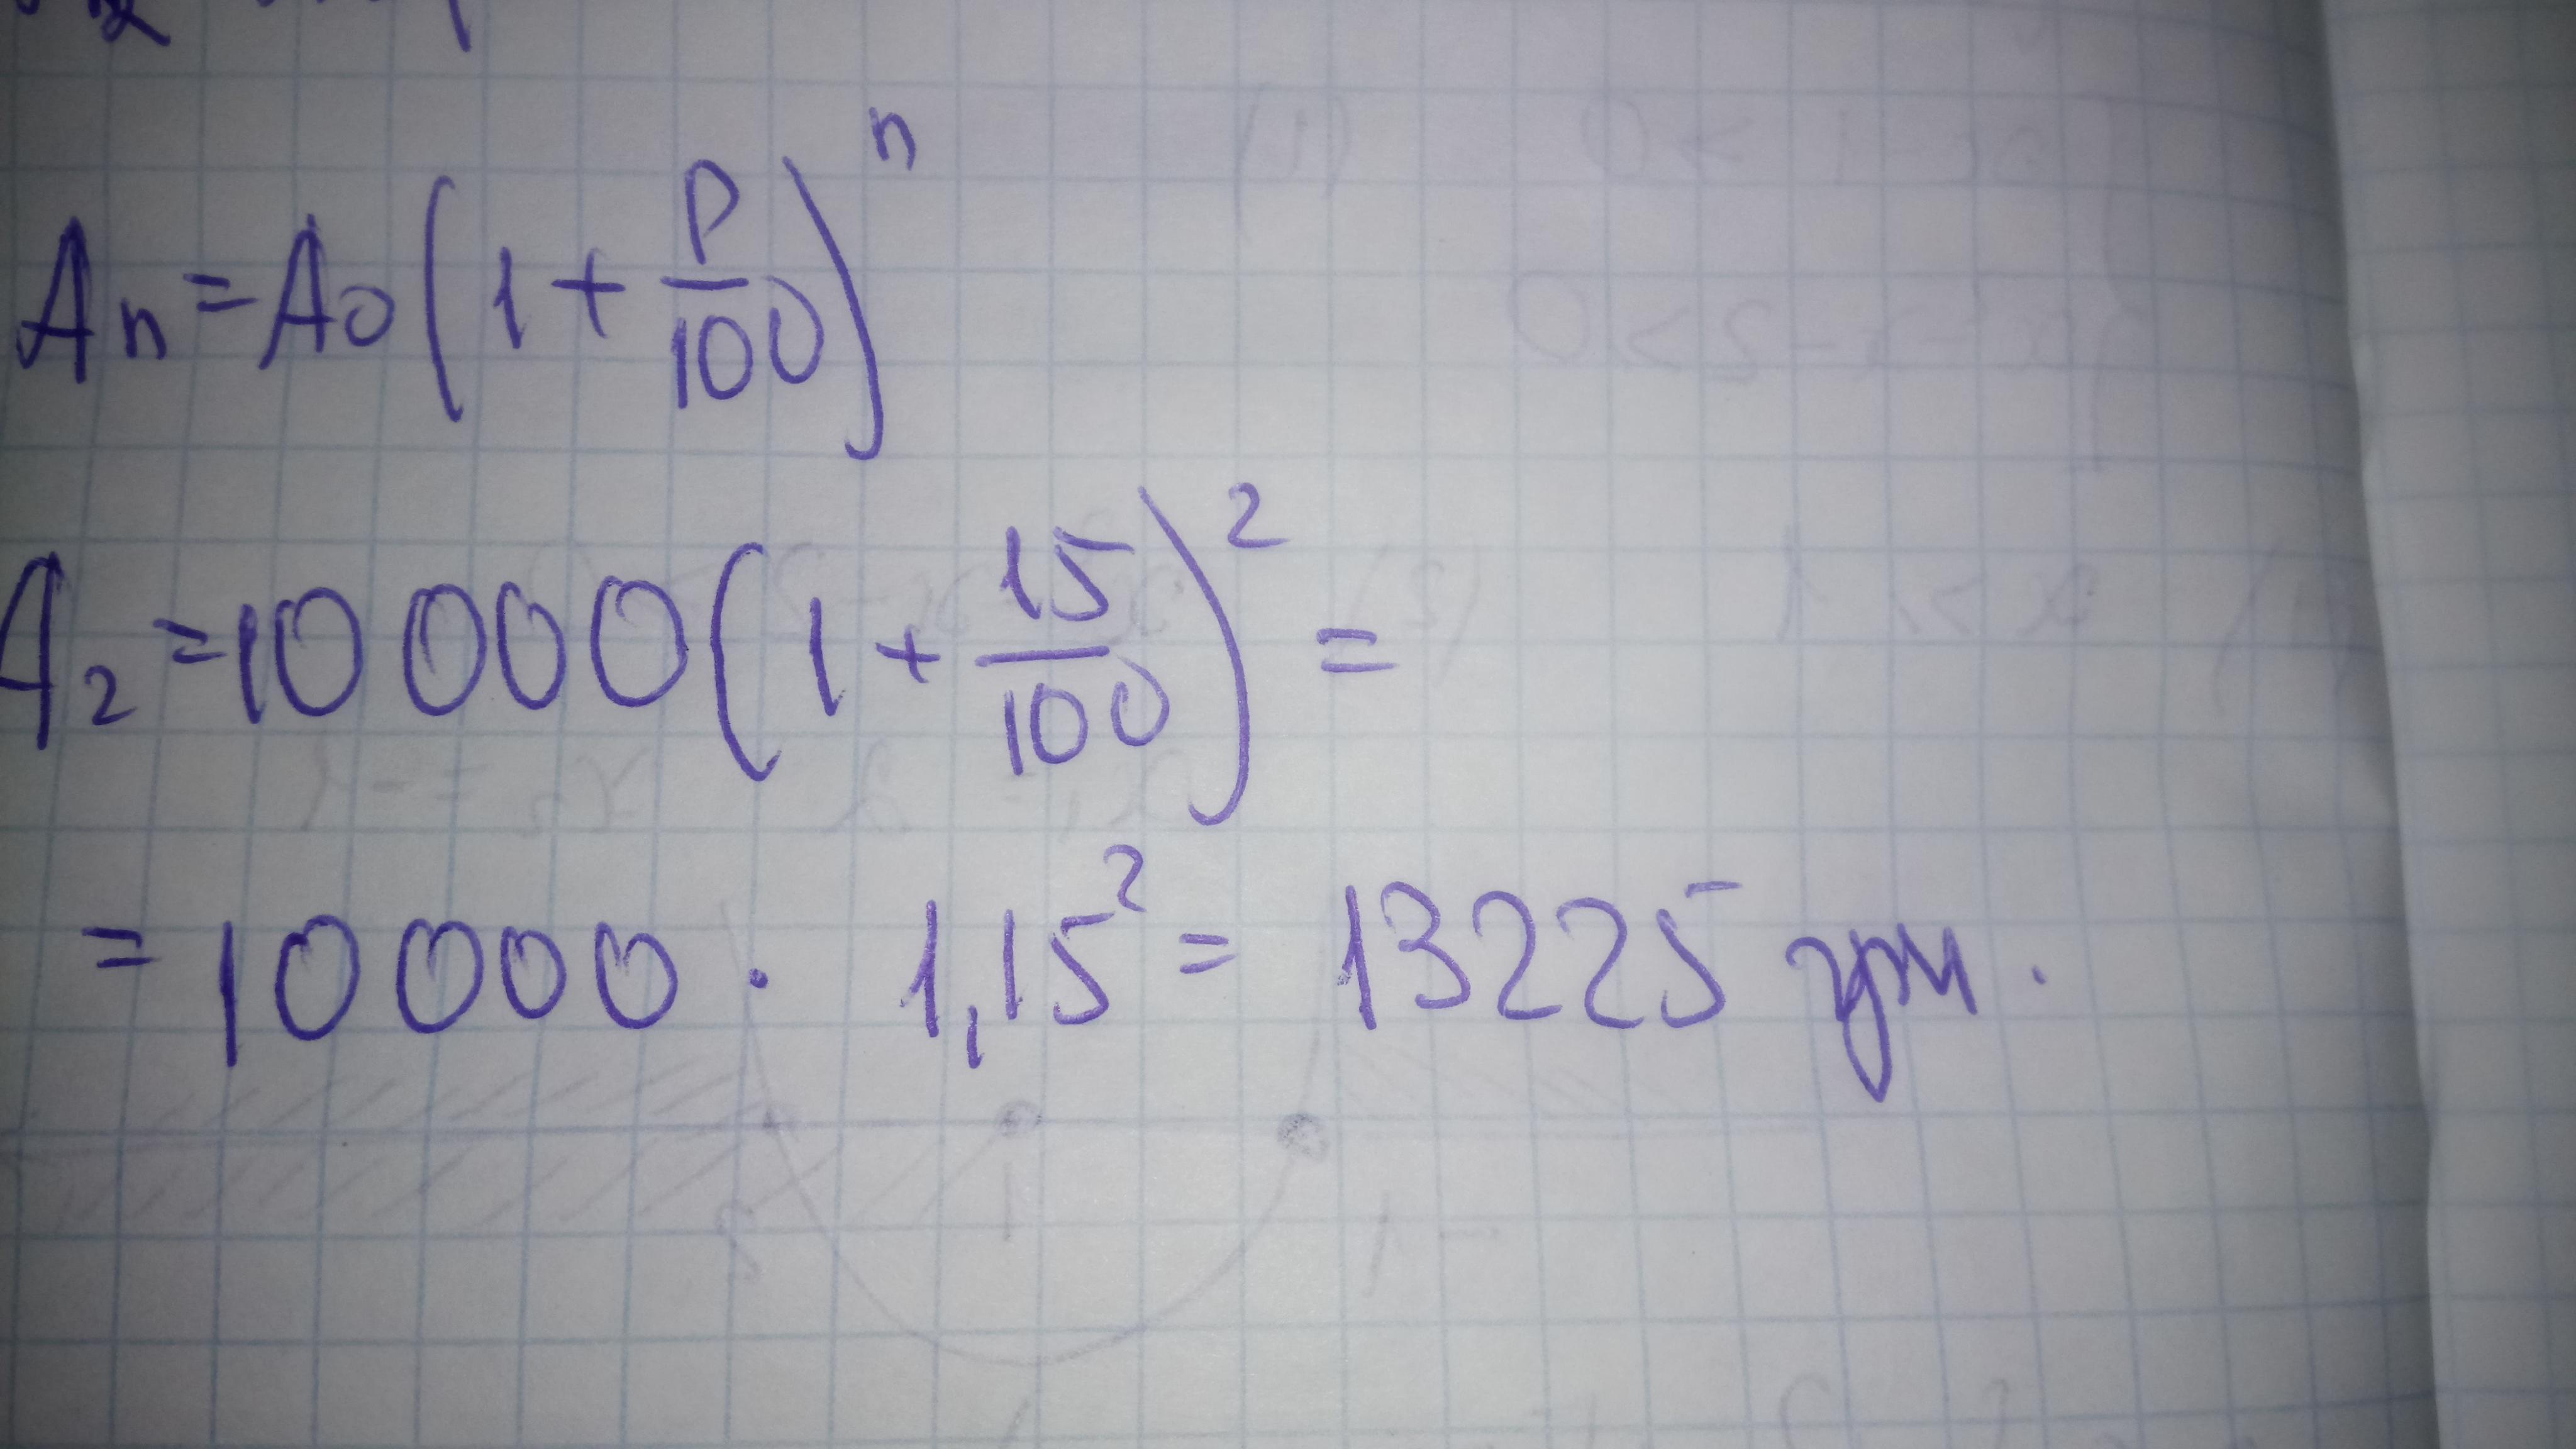 Aₙ = A₀(1 + P/100)ⁿ
A₂ = 10 000(1 + 15/100)² =
= 10 000 · 1,15² = 13225 грн.